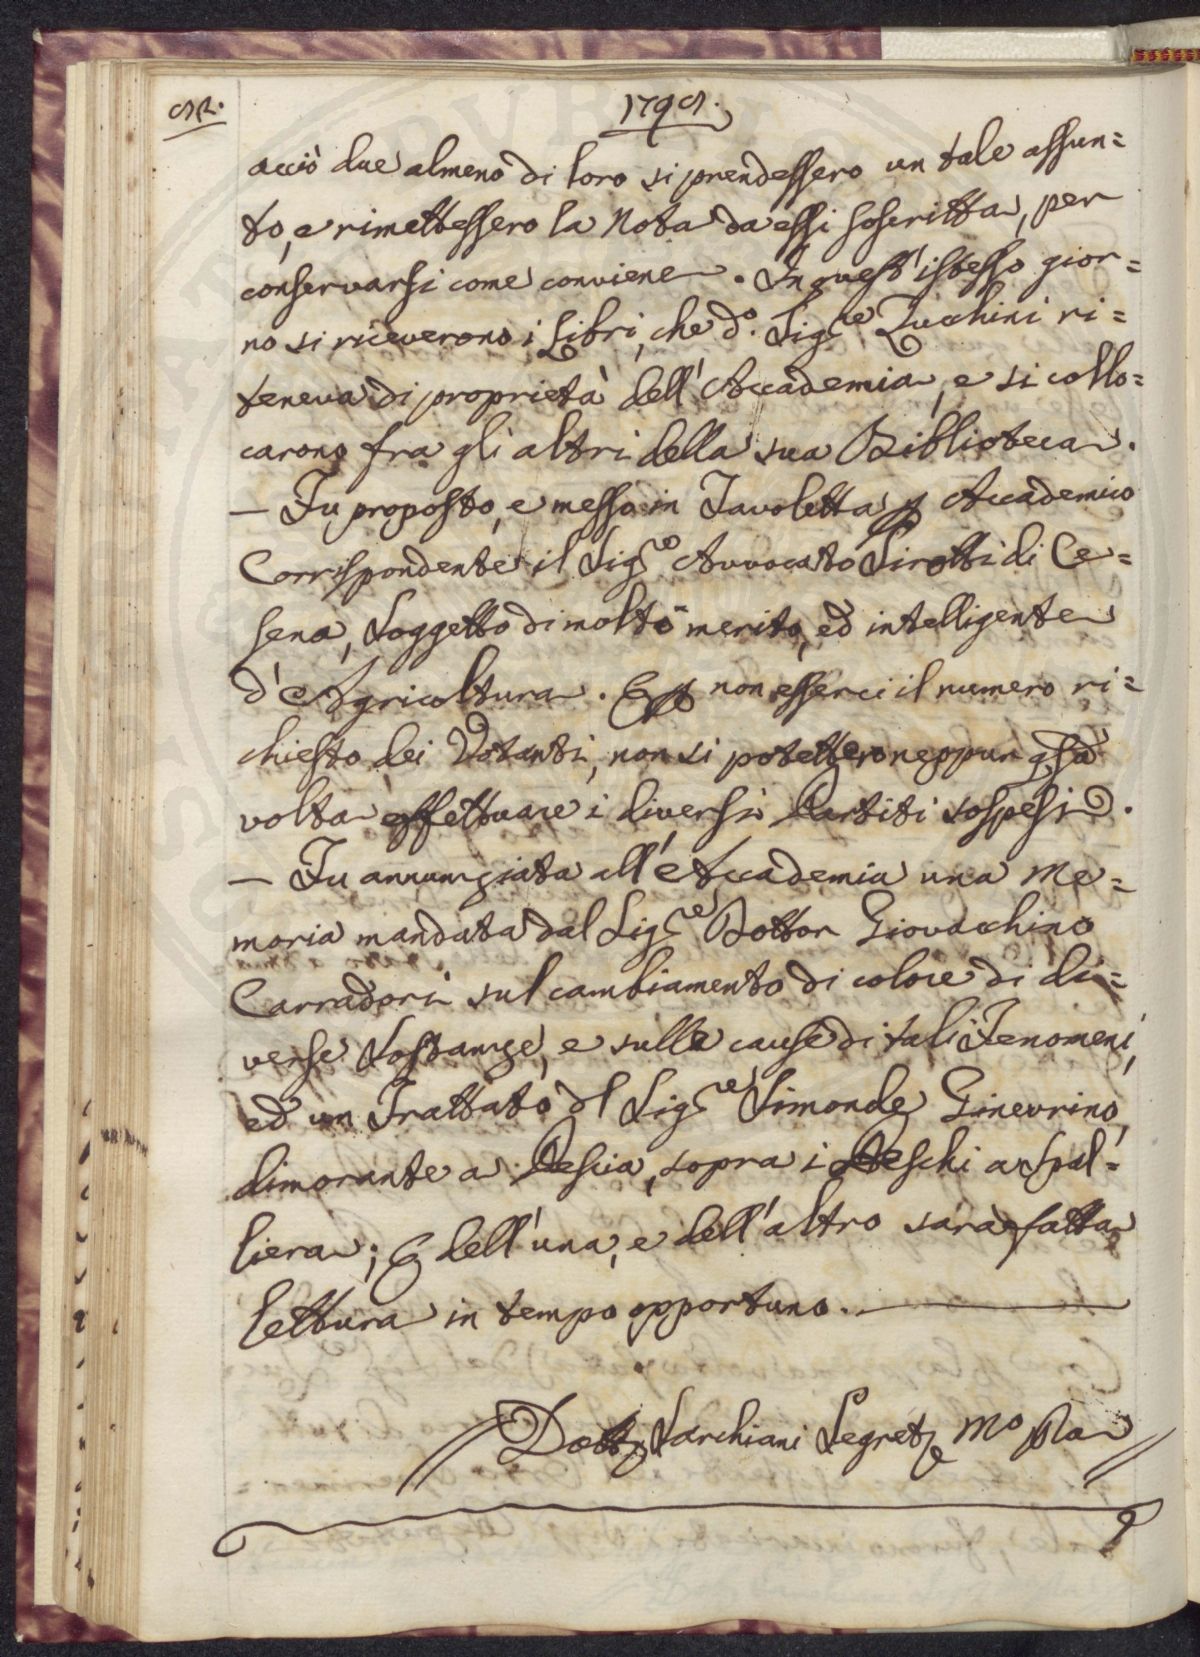 92.
1799.
acciò due almeno di loro si prendessero un tale assun=
to, e rimettessero la Nota da essi soscritta, per
conservarsi come conviene. In quest'istesso gior=
no si riceverono i Libri, che d.o Sig.re Zucchini ri=
teneva di proprietà dell'Accademia, e si collo=
carono fra gli altri della sua Biblioteca.
— Fu proposto, e messo in Tavoletta p Accademico
Corrispondente il Sig.re Avvocato Pirotti di Ce=
sena, Soggetto di molto merito, ed intelligente
d'Agricoltura. E p non esserci il numero ri=
chiesto dei Votanti, non si potettero neppur qsta
volta effettuare i diversi Partiti sospesi.
— Fu annunziata all'Accademia una Me=
moria mandata dal Sig.re Dottor Giovacchino
Carradori sul cambiamento di colore di di=
verse Sostanze, e sulle cause di tali Fenomeni,
ed un Trattato dl Sig.re Simonde Ginevrino,
dimorante a Pescia, sopra i Peschi a Spal=
liera; E dell'una, e dell'altro sarà fatta
lettura in tempo opportuno.
Dott. Sarchiani Segret.e M.o Pa